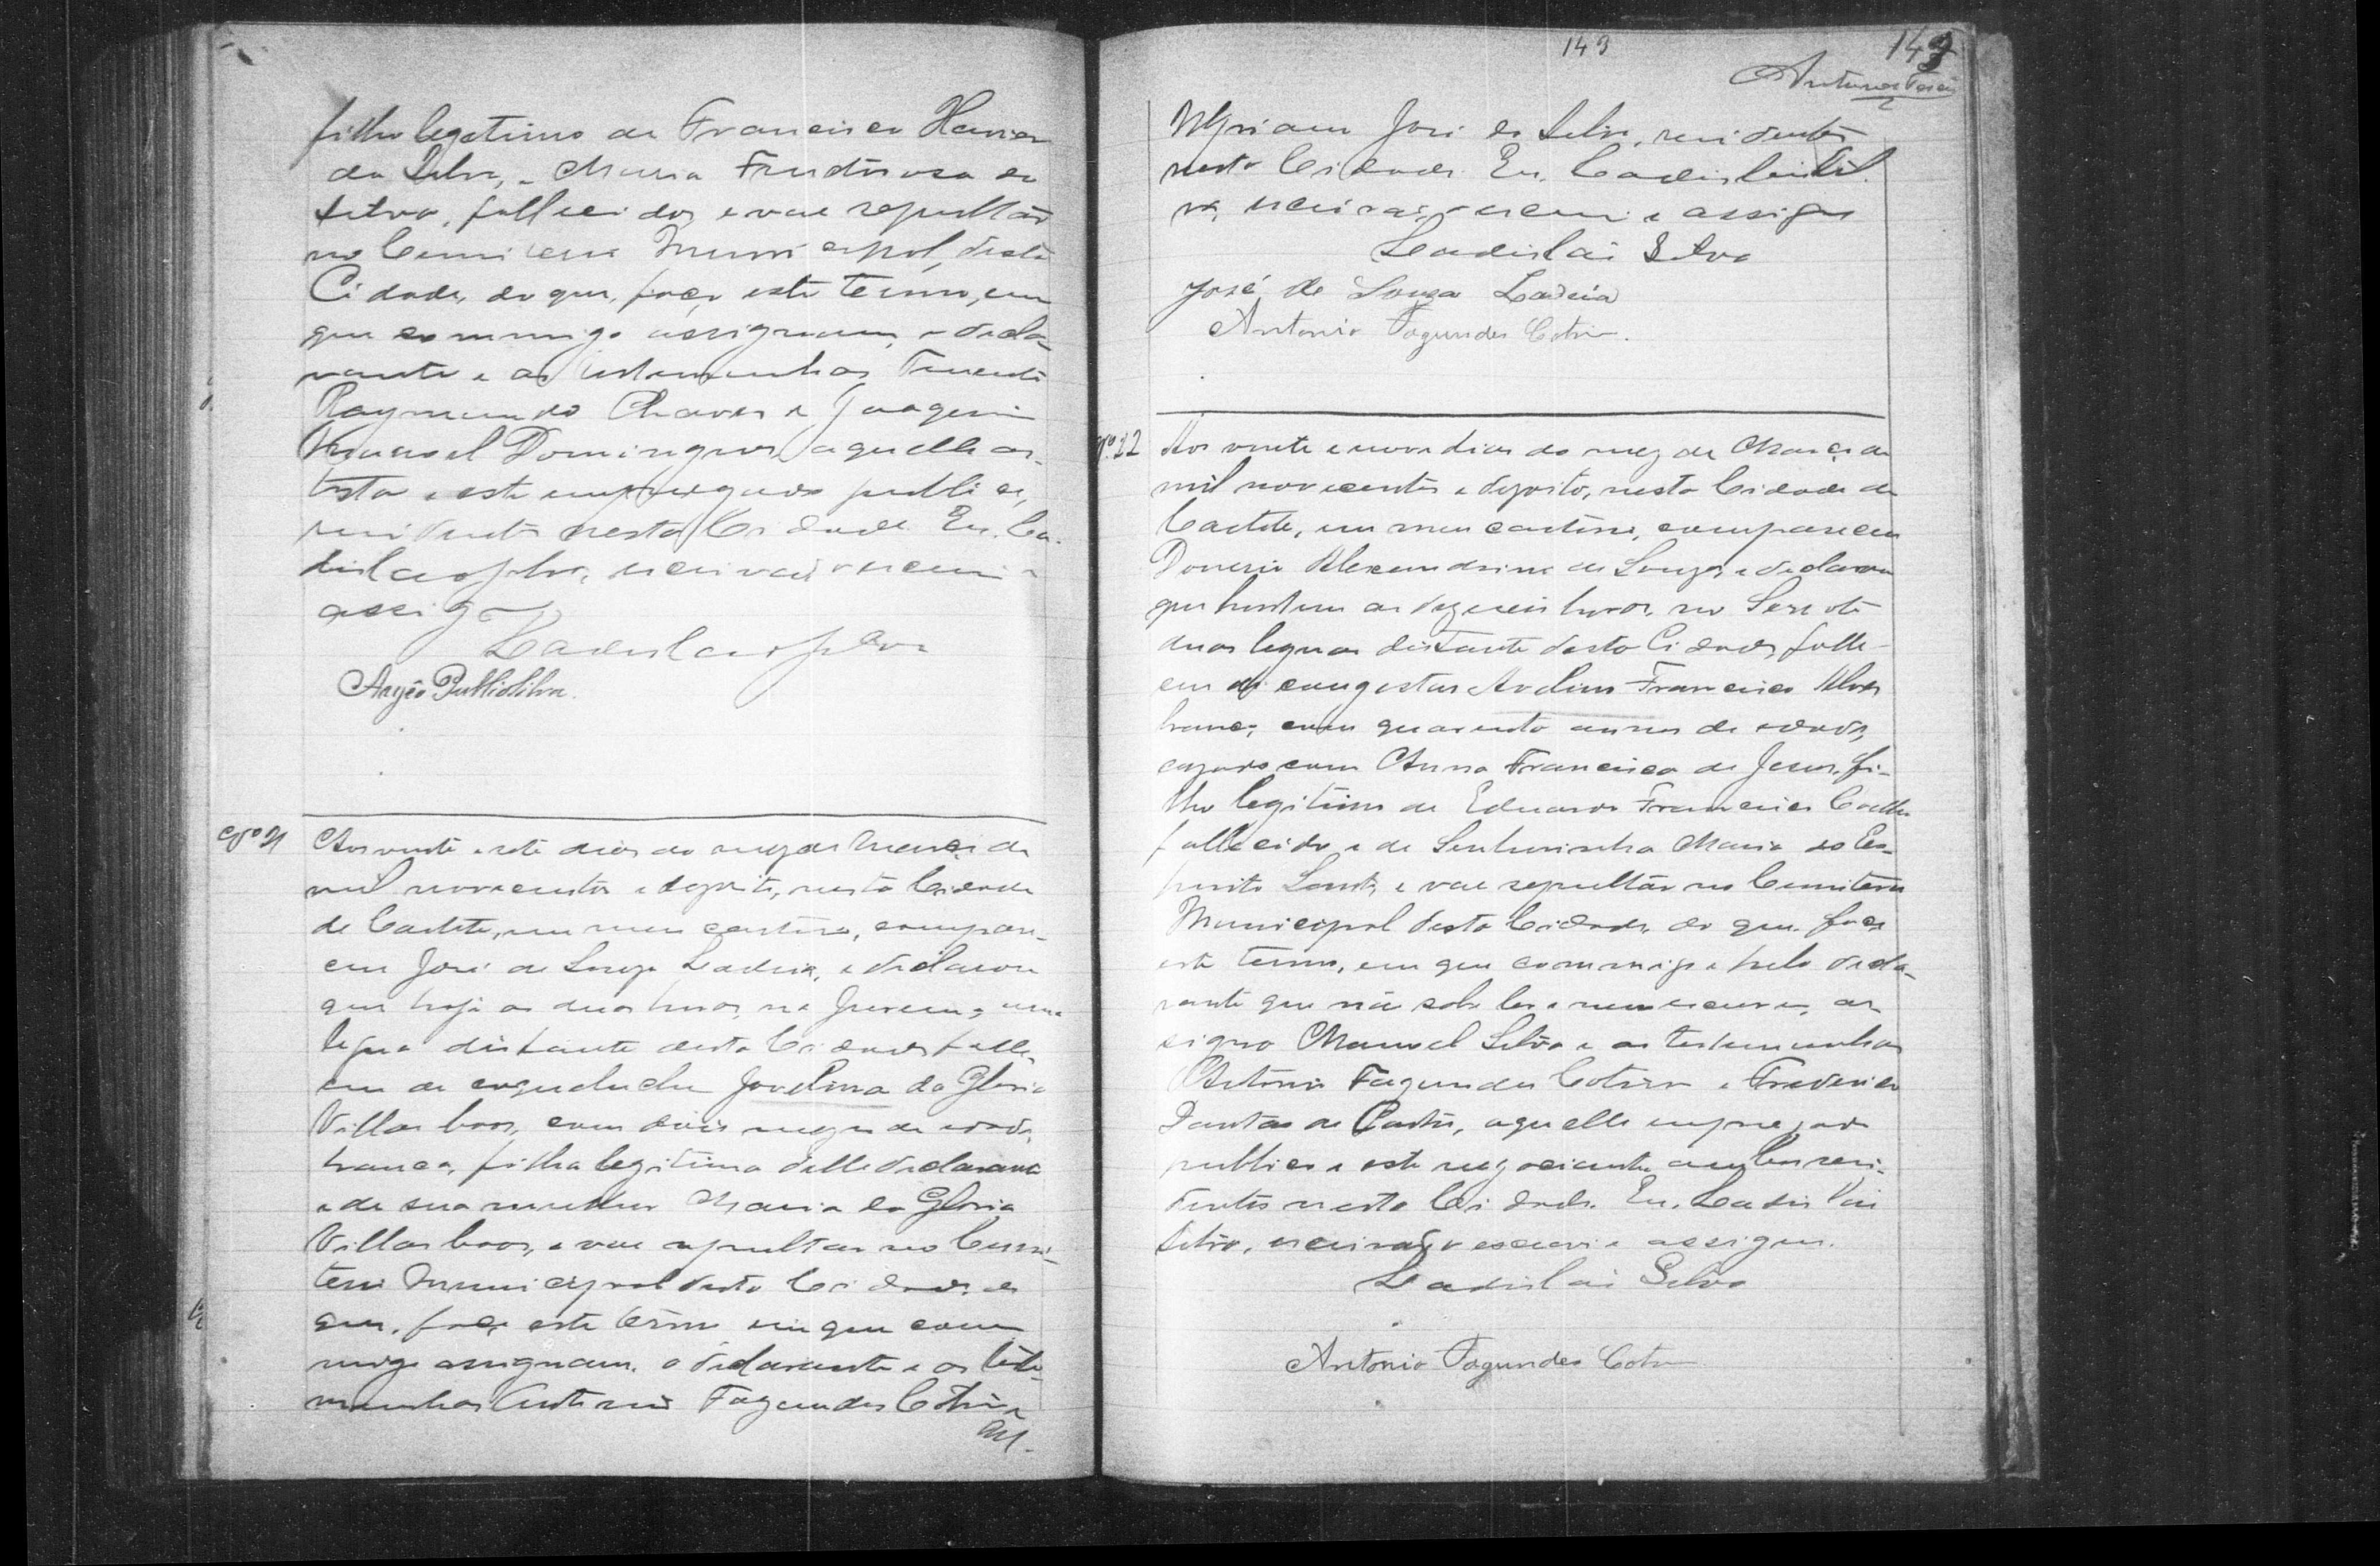 filho legitimo de Francisco Xavier
da Silva, e Maria Fructuosa da
Silva, fallecidos, e vae sepultar
no Cemiterio Municipal, desta
Cidade, do que, faço este termo, em
que commigo assignam, o decla-
rante e as testemunhas Tenente
Raymundo Chaves e Joaquim
Manoel Domingues, aquelle ar-
tista e este empregado publico,
residentes nesta Cidade. Eu, La-
dislao Silva, escrivão o escrevi e
assigno
Ladislao Silva
Argêo Publio Silva.
Nº 21
Aos vinte e sete dias do mez de Março de
mil novecentos e dezoito, nesta Cidade
de Caetité, em meu cartorio, compare-
ceu José de Souza Ladeia, e declarou
que hoje as duas horas, na uma
legua distante desta Cidade, falle-
ceu de coqueluche Jovelina da Gloria
Villas boas, com dois mezes de idade,
branca, filha legitima delle declarante
e de sua mulher Maria da Gloria
Villas boas, e vae sepultar no Cemi-
terio Municipal desta Cidade, do
que, faço este termo em que com-
migo assignam, o declarante e as teste-
munhas Antonio Fagundes Cotrim e
143
143
Antunes
José da Silva, residentes
nesta Cidade. Eu, Ladislau Sil-
va, escrivão, o escrevi e assigno
Ladislau Silva
José de Souza Ladeia
Antonio Fagundes Cotrim.
Nº 22
Aos vinte e nove dias do mez de Março de
mil novecentos e dezoito, nesta Cidade de
Caetité, em meu cartorio, compareceu
Alexandrina de Souza, e declarou
que hontem as dezeseis horas, no Serrote
duas leguas distante desta Cidade, falle-
ceu de congestão Avelino Francisco Alves
branco, com quarenta annos de idade,
cazado com Anna Francisca de Jesus, fi-
lho legitimo de Eduardo Francisco Coelho
fallecido, e de Senhorinha Maria do Es-
pirito Santo, e vae sepultar no Cemiterio
Municipal desta Cidade, do que, faço
este termo, em que commigo e pelo decla-
rante que não sabe ler e nem escrever, as-
signa Manoel Silva e as testemunhas
Antonio Fagundes Cotrim e Frederico
Dantas de Castro, aquelle empregado
publico e este negociante, ambos resi-
dentes nesta Cidade. Eu, Ladislau
Silva, escrivão, o escrevi e assigno.
Ladislau Silva
Antonio Fagundes Cotrim